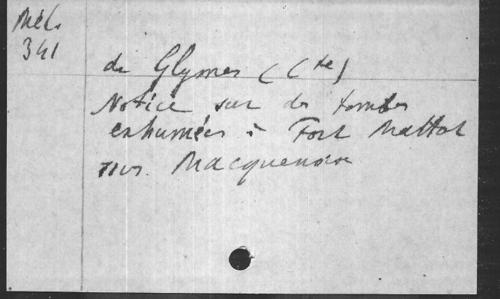 Mél.
341
de Glymes (Cte)
Notice sur des tombes
exhumées à Fort Mattot
Macquenoise